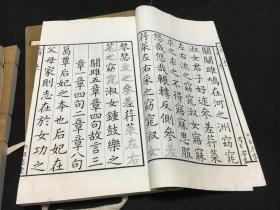 關關雎鳩在河之洲窈窕
淑女君子好逑參差荇菜
左右流之窈窕淑女寤寐
求之求之不得寤寐思服
悠哉悠哉輾轉反側參差
荇菜左右采之窈窕
琴瑟友之參差荇菜左右
芼之窈窕淑女鍾鼓樂之
關雎五章章四句故言三
章一章章四句二章章八句
葛覃后妃之本也后妃在
父母家則志在於女功之